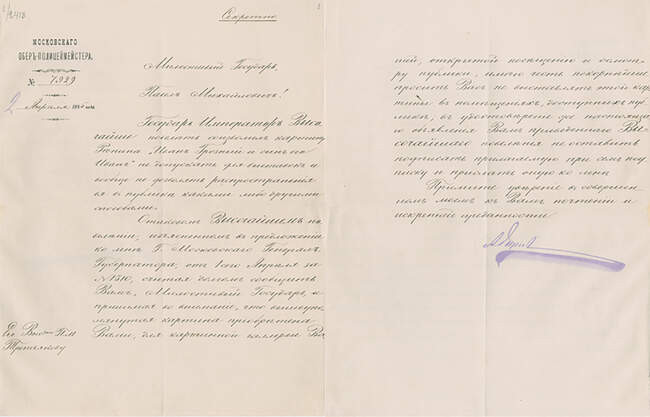 Секретно
МОСКОВСКАГО
ОБЕРЪ-ПОЛИЦЕЙМЕЙСТЕРА.
№ 7929
2 Апрѣля 1885 года
Милостивый Государь,
Павелъ Михайловичъ!
Государь Императоръ Высо-
чайше повелѣть соизволилъ картину
Рѣпина "Иванъ Грозный и сынъ его
Иванъ" не допускать до выставокъ и
вообще не дозволять распространенія
ея въ публикѣ какими либо другими
способами.
О таковомъ Высочайшемъ по-
велѣніи, изъясненномъ въ предложеніи
ко мнѣ Г. Московскаго Генералъ-
Губернатора, отъ 1го Апрѣля за
№ 1510, считая долгомъ сообщить
Вамъ, Милостивый Государь, и
принимая во вниманіе, что вышеупо-
мянутая картина пріобрѣтена
Вами, для картинной галлереи Ва-
Его П.М.
Третьякову
шей, открытой посѣщенію и осмот-
ру публики, имѣю честь покорнѣйше
просить Васъ не выставлять этой кар-
тины въ помѣщеніяхъ, доступныхъ пуб-
ликѣ, въ удостовѣреніе же настояща-
го объявленія Вамъ приведеннаго Вы-
сочайшаго повелѣнія не оставить
подписать прилагаемую при семъ под-
писку и прислать оную ко мнѣ.
Примите увѣреніе въ совершен-
номъ моемъ къ Вамъ почтеніи и
искренней преданности